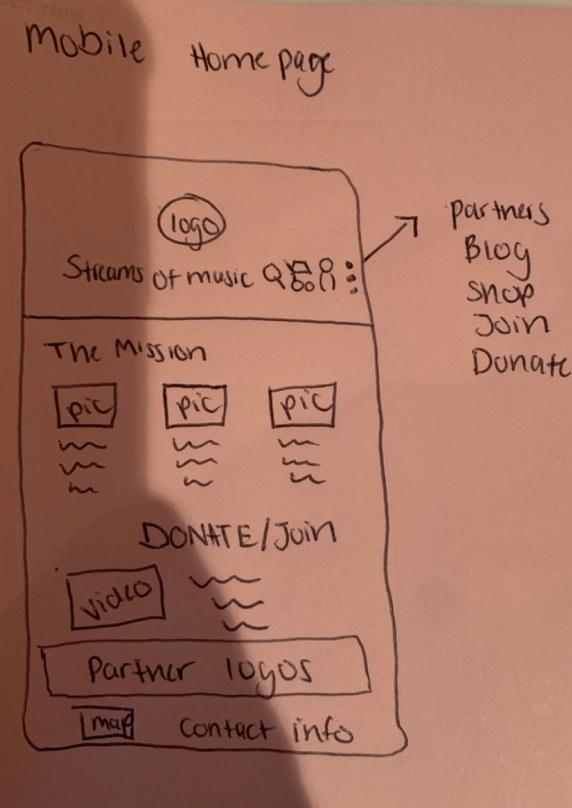 Mobile Home page
logo
Streams of music
Partners
Blog
Shop
Join
Donate
The Mission
pic pic pic
DONATE/Join
video
Partner logos
map contact info